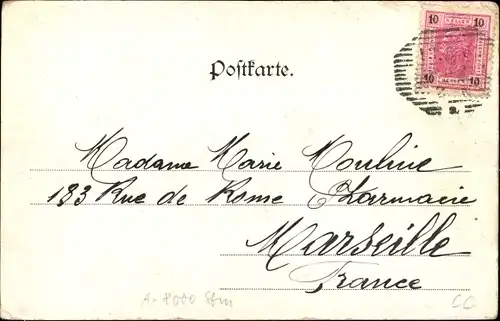 10 10
10 10
Postkarte.
Madame Marie Mouline
183 Rue de Rome Pharmacie
Marseille
France
A-8000
CC